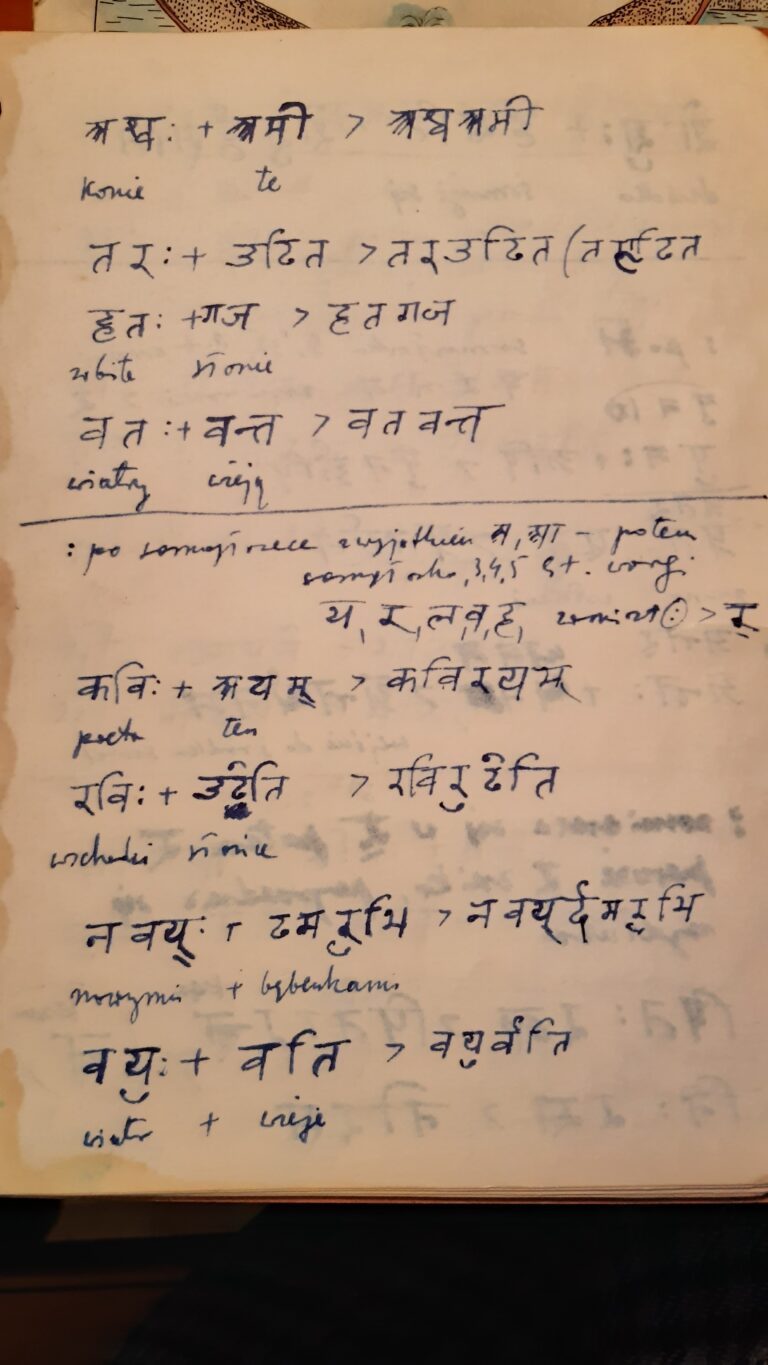 अश्वः + अमी > अश्वअमी
konie te
तरः + उदित > तरउदित (त
हतः + गज > हतगज
zbite słonie
वतः + वन्त > वतवन्त
wiatry wieją
: po samogłosce z wyjątkiem अ, आ – potem
samogłoska, 3,4,5 st. wargi
य, र, ल, व, ह, zamiast : > र्
कविः + अयम् > कविरयम्
poeta ten
रविः + उदेति > रविरुदेति
wschodzi słońce
नवयः + दमरुभि > नवयर्दमरुभि
nowymi + bębenkami
वयुः + वति > वयुर्वति
wiatr + wieje